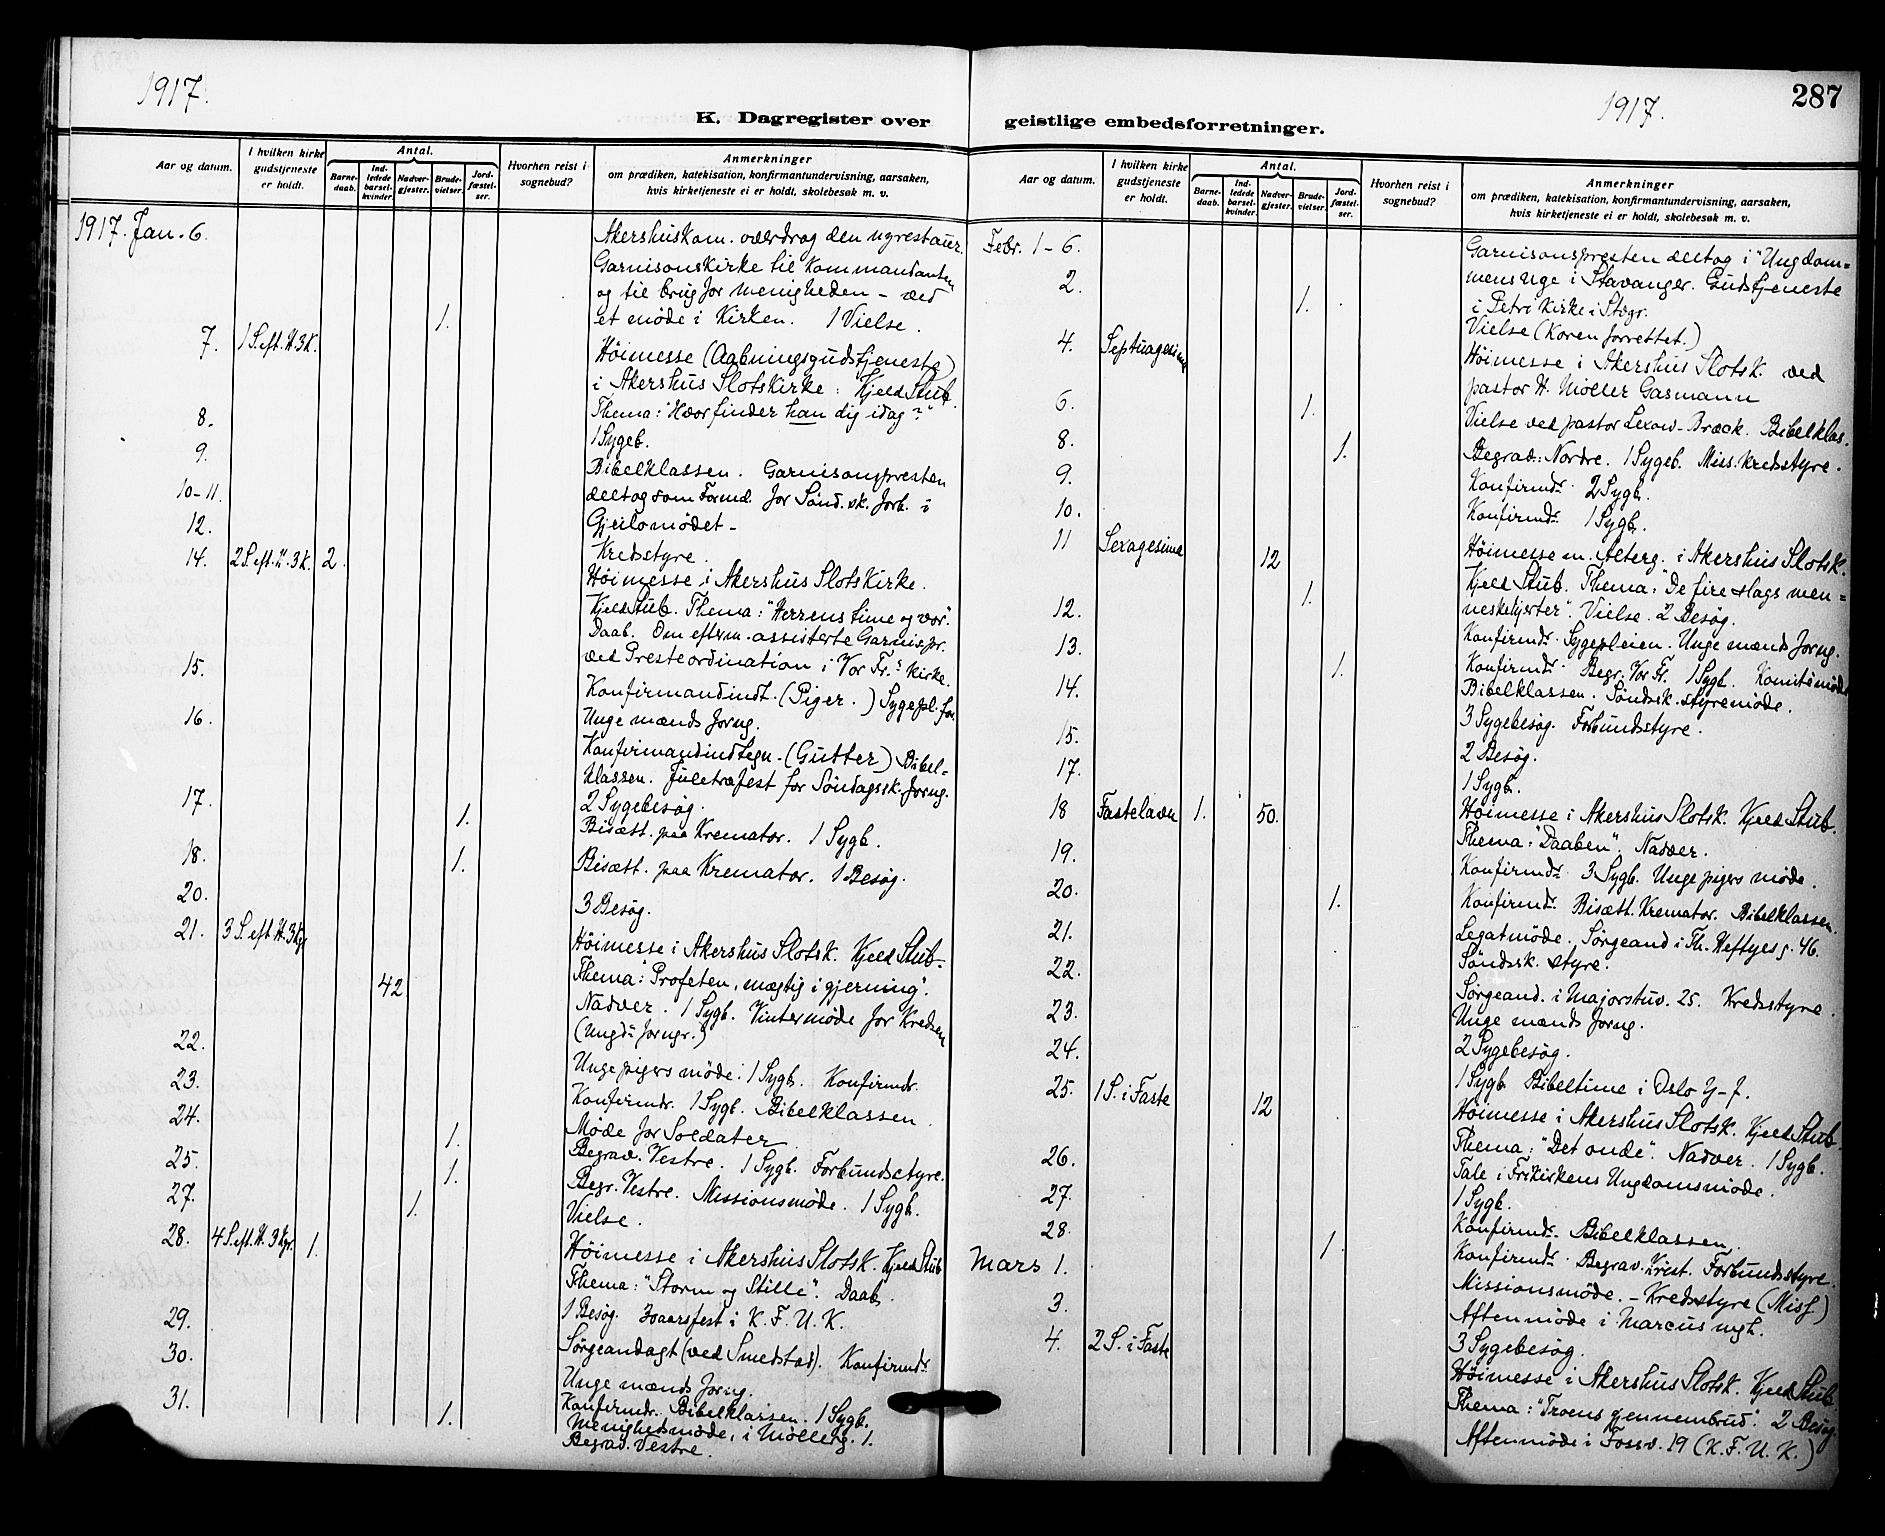 1917.
K. Dagregister over
Aar og datum.
I hvilken kirke gudstjeneste er holdt.
Antal.
Barne-daab.
Ind-ledede barsel-kvinder.
Nadver-gjester.
Brude-vielser.
Jord-fæstel-ser.
Hvorhen reist i sognebud?
Anmerkninger
om prædiken, katekisation, konfirmantundervisning, aarsaken,
hvis kirketjeneste ei er holdt, skolebesøk m. v.
1917. Jan. 6. Akershuskom. overdrog den nyrestaur.
Garnisonskirke til Kommandanten
og til brug for menigheden – ved
et møde i Kirken. 1 Vielse. 1.
7. 1 S. eft. H. 3 K. Høimesse (Aabningsgudstjeneste)
i Akershus Slotskirke: Kjeld Stub.
Thema: "Hvor finder han dig idag?"
8. 1 Sygeb.
9. Bibelklassen. Garnisonspresten
10–11. deltog som Formd. for Sönd. sk. forb. i
Gjeilomødet –
12. Kredsstyre.
14. 2 S. eft. H. 3 K. 2. Høimesse i Akershus Slotskirke.
Kjeld Stub. Thema: "Herrens time og vor".
Daab. Om efterm. assisterte Garnis.pr.
ved Presteordination i Vor Fr.s Kirke.
15. Konfirmandindt. (Piger.) Sygepl. for.
Unge mænds forng.
16. Konfirmandindtegn. (Gutter) Bibel-
klassen. Juletræfest for Söndagssk. forng.
17. 2 Sygebesøg.
Bisætt. paa Kremator. 1 Sygb. 1.
18. Bisætt. paa Krematór. 1 Besøg. 1.
20. 3 Besøg.
21. 3 S. eft. H. 3 Kgr Høimesse i Akershus Slotsk. Kjeld Stub.
Thema: "Profeten, mægtig i gjerning".
42 Nadver. 1 Sygb. Vintermøde for Kredsen
(Ungd. forngr.)
22. Unge pigers møde: 1 Sygb. Konfirmdr.
23. Konfirmdr. 1 Sygb. Bibelklassen.
24. Møde for Soldater
Begrav. Vestre. 1 Sygb. Forbundsstyre. 1.
25. Begr. Vestre. Missionsmøde. 1 Sygb. 1.
27. Vielse. 1.
28. 4 S. eft. H. 3 Kgr. 1. Høimesse i Akershus Slotsk. Kjeld Stub
Thema: "Storm og Stille". Daab.
1 Besøg. 30aarsfest i K. F. U. K.
29. Sørgeandagt (ved Smedstad). Konfirmdr
30. Unge mænds forng.
Konfirmdr. Bibelklassen. 1 Sygb.
31. Menighedsmøde, i Møllerg. 1.
Begrav. Vestre. 1.
1917.
287
geistlige embedsforretninger.
Aar og datum.
I hvilken kirke gudstjeneste er holdt.
Antal.
Barne-daab.
Ind-ledede barsel-kvinder.
Nadver-gjester.
Brude-vielser.
Jord-fæstel-ser.
Hvorhen reist i sognebud?
Anmerkninger
om prædiken, katekisation, konfirmantundervisning, aarsaken,
hvis kirketjeneste ei er holdt, skolebesøk m. v.
Febr. 1–6. Garnisonspresten deltog i "Ungdom=
mens uge i Stavanger. Gudstjeneste
i Petri Kirke i Stvgr.
2. 1. Vielse (Koren forrettet.)
4. Septuagesima Høimesse i Akershus Slotsk. ved
pastor H. Møller Gasmann
6. 1. Vielse ved pastor Lexow-Bræck. Bibelklas.
8. 1. Begrav: Nordre. 1 Sygeb. Miss. kredsstyre.
9. Konfirmdr. 2 Sygb.
10. Konfirmdr. 1 Sygb.
11 Sexagesima 12 Høimesse m. Alterg. i Akershus Slotsk.
Kjeld Stub. Thema: "De fire slags men=
neskehjerter". Vielse. 2 Besøg. 1.
12. Konfirmdr. Sygepleien. Unge mænds forng.
13. Konfirmdr. Begr. Vor Fr. 1 Sygb. Komitémøde 1.
Bibelklassen. Söndsk. styremøde.
14. 3 Sygebesøg. Forbundsstyre.
15. 2 Besøg.
17. 1 Sygb.
18 Fastelavn 1. 50. Høimesse i Akershus Slotsk. Kjeld Stub.
Thema: "Daaben". Nadver.
19. Konfirmdr. 3 Sygb. Unge pigers møde.
20. 1. Konfirmdr. Bisætt. Krematór. Bibelklassen.
21. Legatmøde. Sørgeand. i Th. Heftyes g. 46.
Söndssk. styre.
22. Sørgeand. i Majorstuv. 25. Kredsstyre.
23. Unge mænds forng.
24. 2 Sygebesøg.
1 Sygb. Bibeltime i Oslo Y-f.
25. 1 S. i Faste 12 Høimesse i Akershus Slotsk. Kjeld Stub.
Thema: "Det onde". Nadver. 1 Sygb.
26. Tale i Frikirkens Ungdomsmøde.
27. 1 Sygb.
Konfirmdr. Bibelklassen.
28. 1. Konfirmdr. Begrav. Krist. Forbundsstyre.
Mars 1. Missionsmøde. – Kredsstyre (Miss.)
Aftenmøde i Marcus mgh.
3. 3 Sygebesøg.
4. 2 S. i Faste Høimesse i Akershus Slotsk. Kjeld Stub.
Thema: "Troens gjennembrud". 2 Besøg.
Aftenmøde i Fossv. 19 (K. F. U. K.)